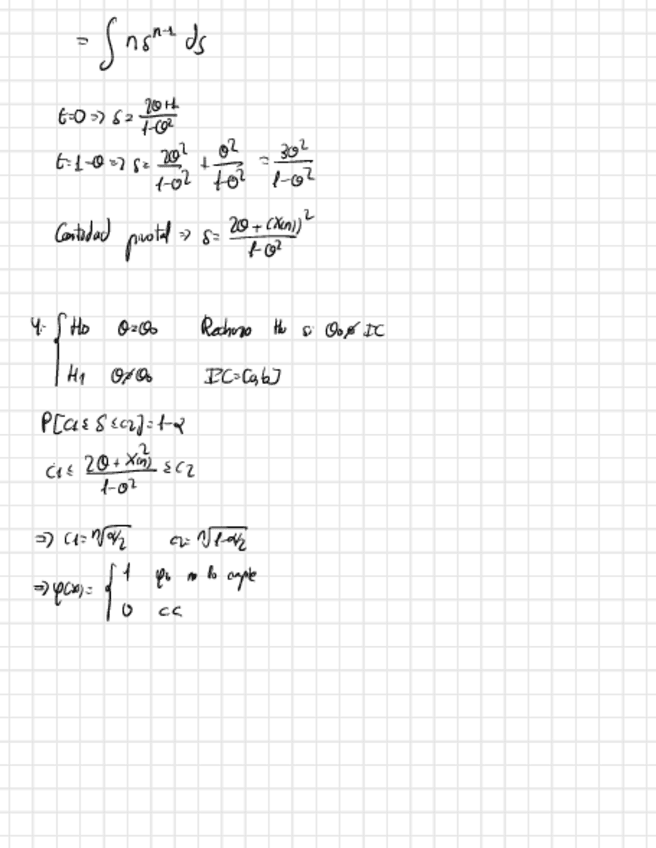 = ∫ n s^{n-1} ds
t=0 => s = (2θ+1)/(1-θ²)
t=1-θ => s = 2θ²/(1-θ²) + θ²/(1-θ²) = 3θ²/(1-θ²)
Cantidad pivotal => s = (2θ+(X(n))²)/(1-θ²)
4. { H0 θ=θ0 Rechazo H0 si θ0∉ IC
H1 θ≠θ0 IC=[a,b]
P[c1≤ s ≤c2]=1-α
c1≤ (2θ+X(n)²)/(1-θ²) ≤c2
=> c1= ⁿ√(α/2) c2= ⁿ√(1-α/2)
=> φ(x)= { 1 no lo
0 cc